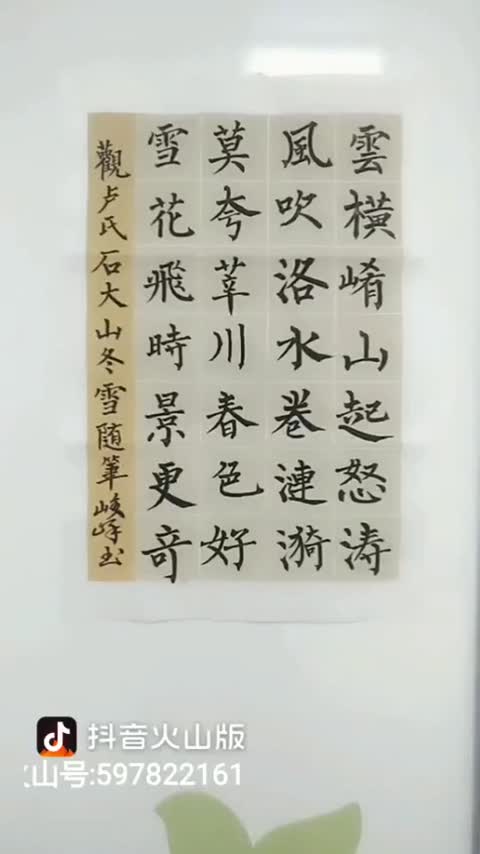 雲橫崤山起怒涛
風吹洛水卷漣漪
莫夸莘川春色好
雪花飛時景更奇
觀卢氏石大山冬雪随筆峻峰书
抖音火山版
火山号:597822161